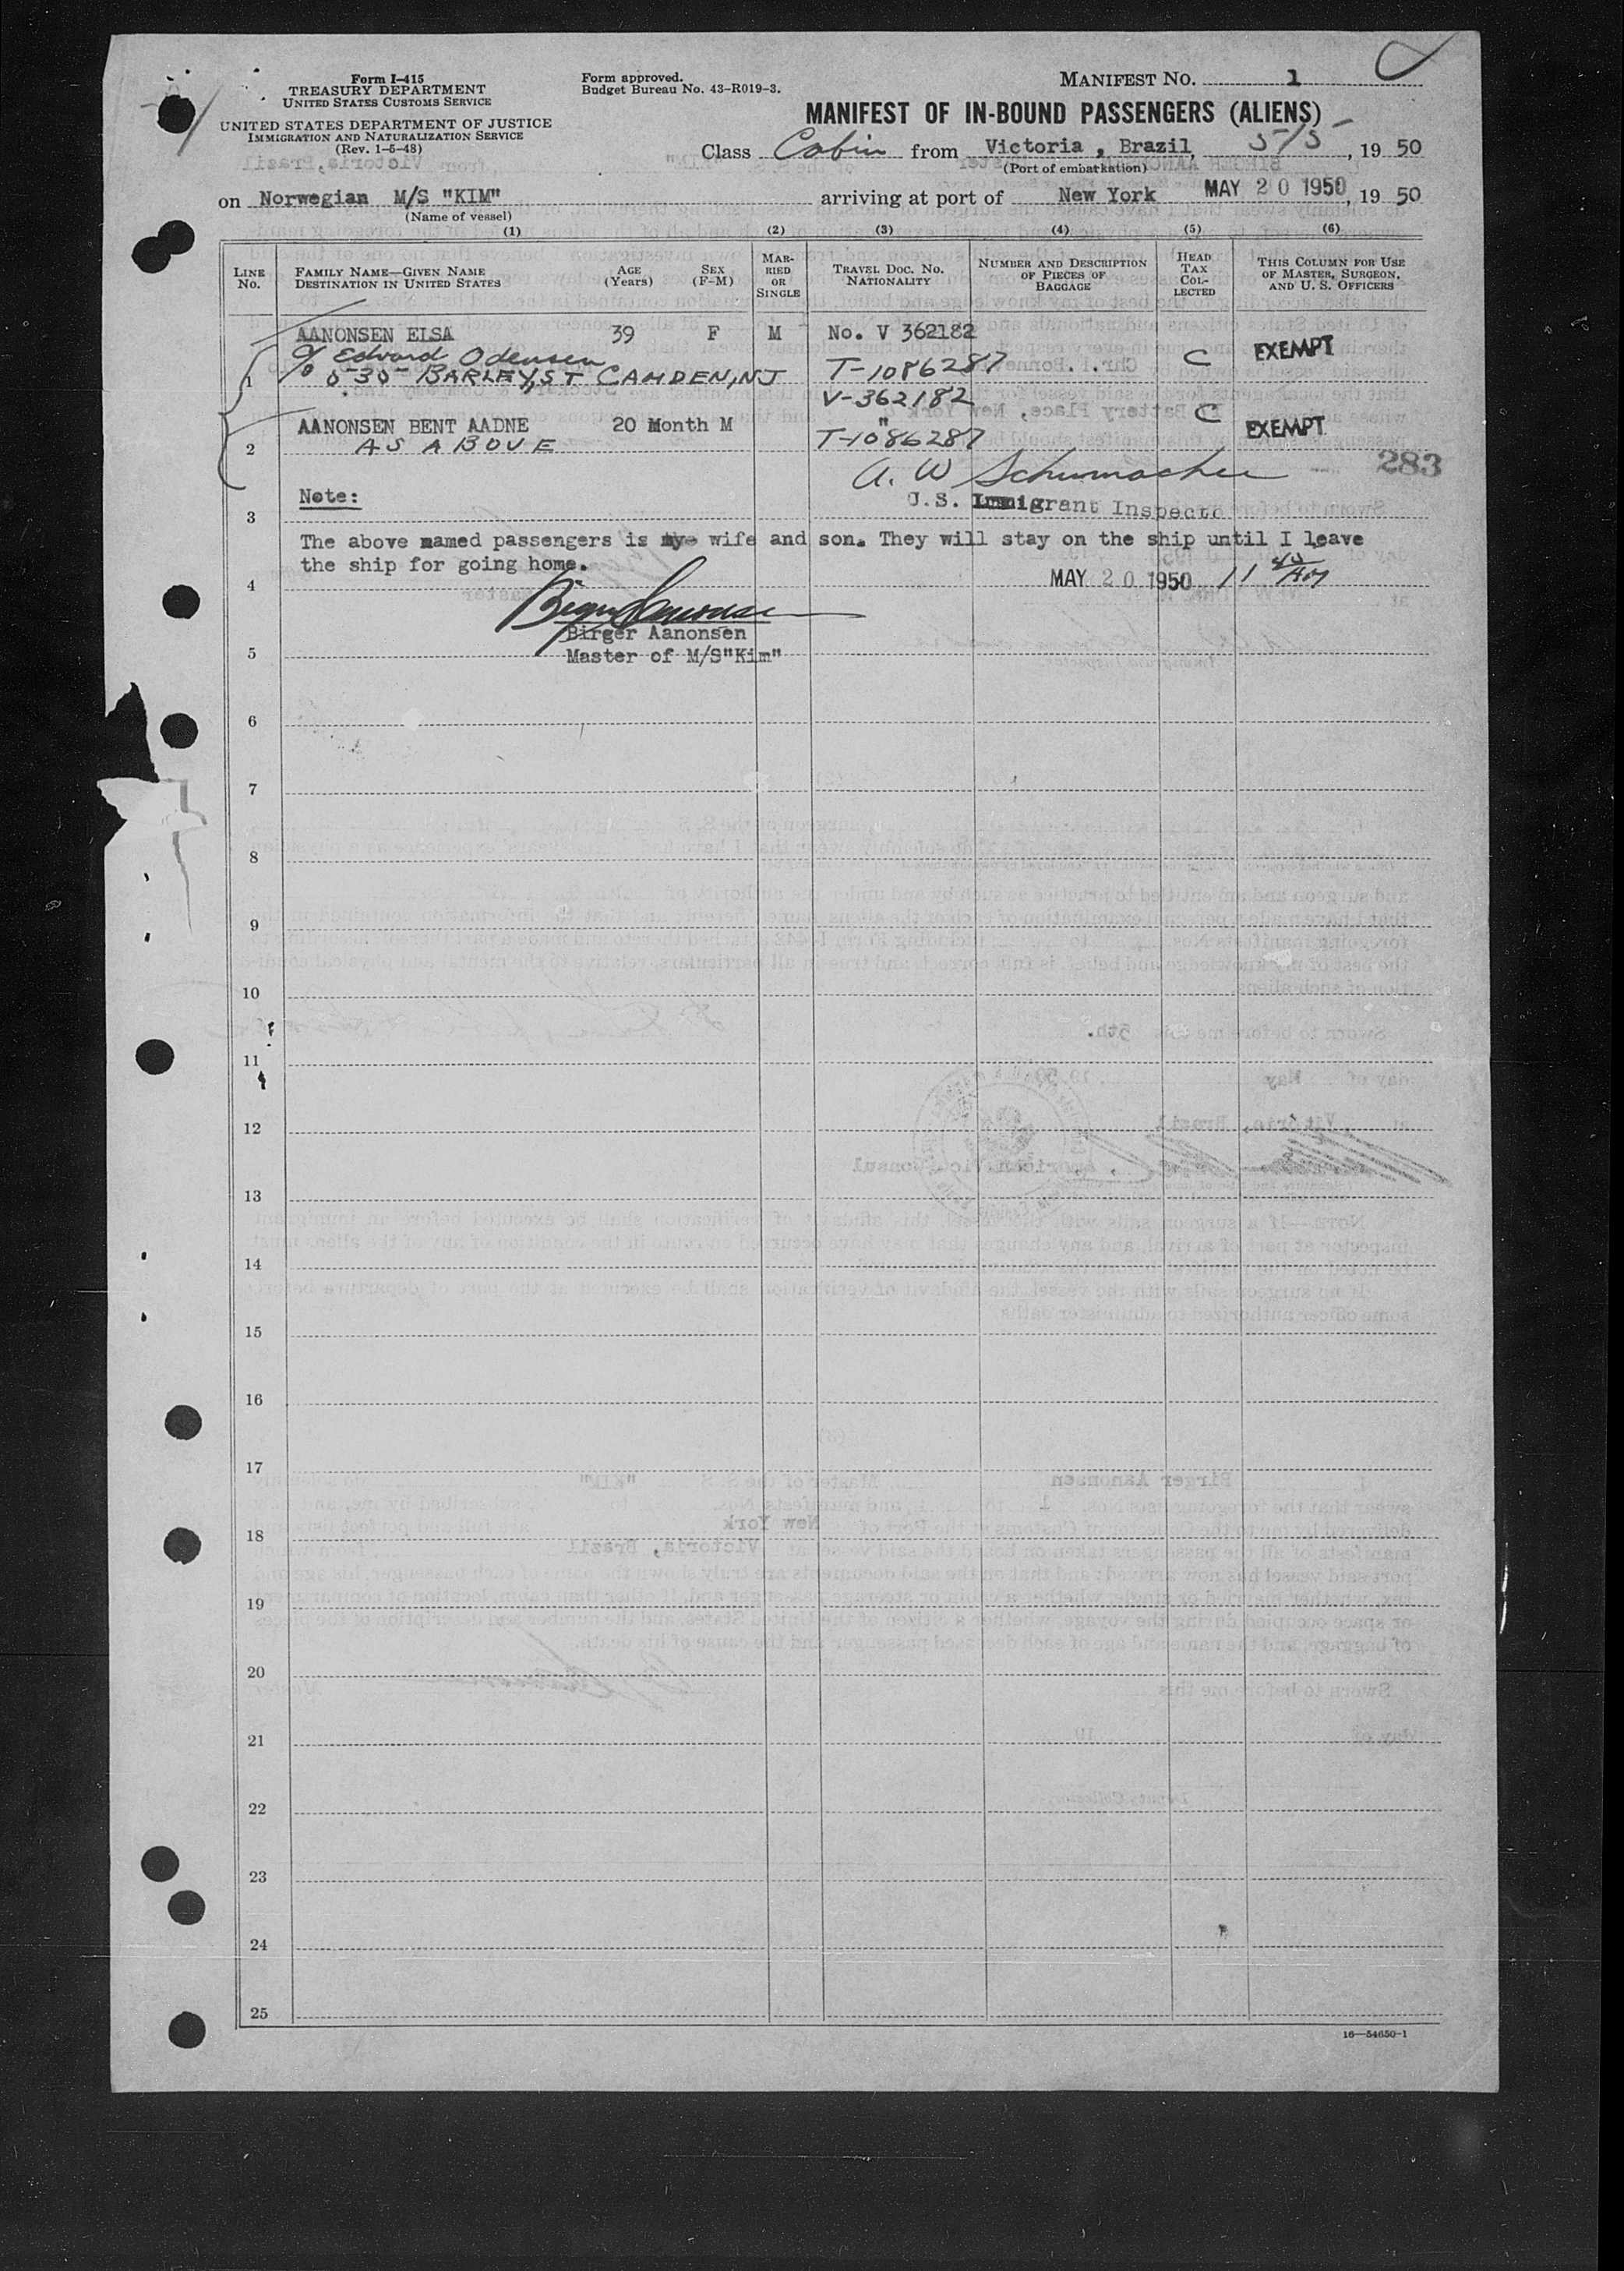 Form I-415
TREASURY DEPARTMENT
UNITED STATES CUSTOMS SERVICE
UNITED STATES DEPARTMENT OF JUSTICE
IMMIGRATION AND NATURALIZATION SERVICE
(Rev. 1-5-48)
Form approved.
Budget Bureau No. 43-R019-3.
MANIFEST NO. 1
MANIFEST OF IN-BOUND PASSENGERS (ALIENS)
Class Cabin from Victoria, Brazil, 5/5, 19 50
(Port of embarkation)
on Norwegian M/S "KIM" arriving at port of New York MAY 20 1950, 19 50
(Name of vessel)
(1) (2) (3) (4) (5) (6)
LINE No. FAMILY NAME—GIVEN NAME DESTINATION IN UNITED STATES AGE (Years) SEX (F-M) MARRIED OR SINGLE TRAVEL DOC. NO. NATIONALITY NUMBER AND DESCRIPTION OF PIECES OF BAGGAGE HEAD TAX COLLECTED THIS COLUMN FOR USE OF MASTER, SURGEON, AND U. S. OFFICERS
AANONSEN ELSA 39 F M No. V 362182
c/o Edvard Odensen T-1086287 C EXEMPT
1 530 BARLEY ST CAMDEN, NJ
V-362182 C
AANONSEN BENT AADNE 20 Month M " EXEMPT
2 AS ABOVE T-1086287
A. W Schumacher 283
Note: U.S. Immigrant Inspector
3
The above named passengers is my wife and son. They will stay on the ship until I leave
the ship for going home.
4 MAY 20 1950 11 40 AM
Birger Aanonsen
Birger Aanonsen
5 Master of M/S"Kim"
6
7
8
9
10
11
12
13
14
15
16
17
18
19
20
21
22
23
24
25
16—54650-1